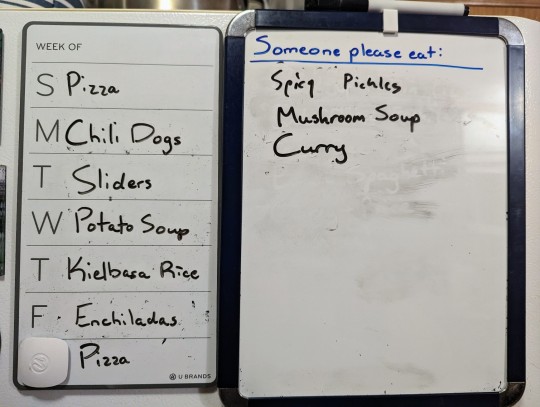 WEEK OF
S Pizza
M Chili Dogs
T Sliders
W Potato Soup
T Kielbasa Rice
F Enchiladas
Pizza
U BRANDS
Someone please eat:
Spicy Pickles
Mushroom Soup
Curry